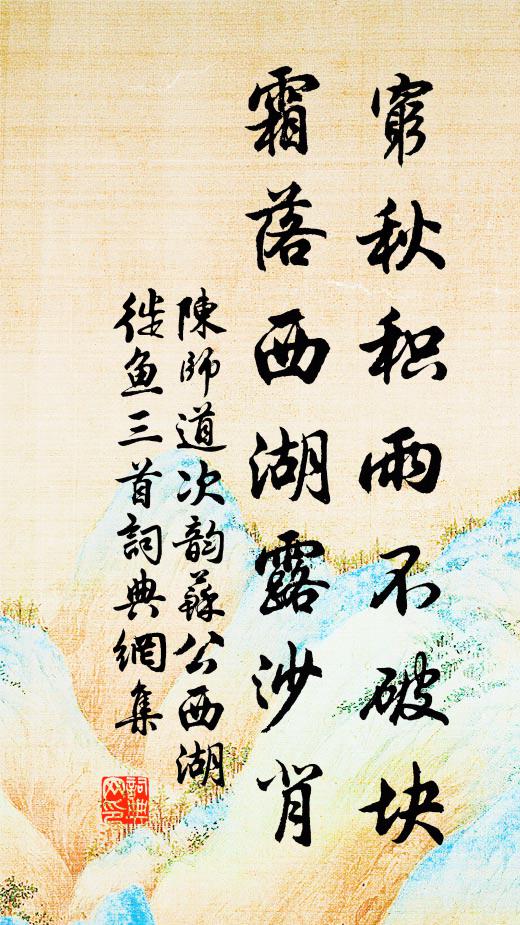 窮秋积雨不破块
霜落西湖露沙背
陳師道次韵蘇公西湖
徙魚三首詞典網集